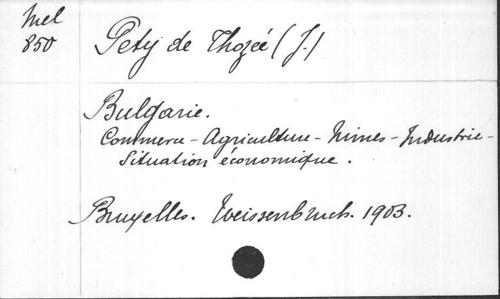 Mel
850
Pety de Thozée (J.)
Bulgarie.
Commerce - Agriculture - Mines - Industrie -
Situation économique.
Bruxelles. Weissenbruch. 1903.